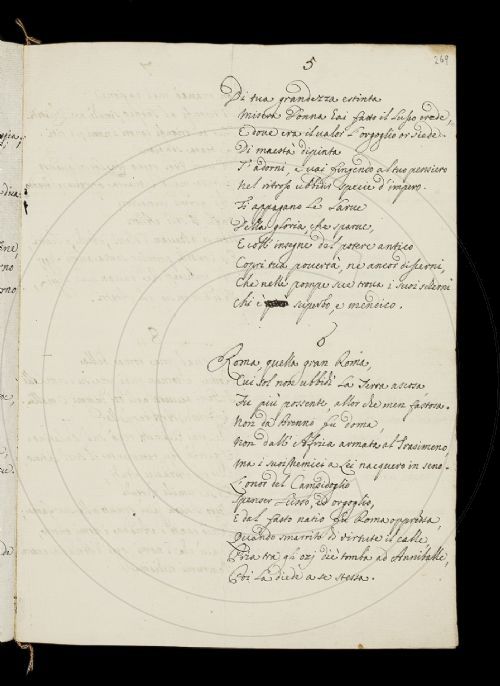 5
269
Di tua grandezza estinta
misera Donna hai fatto il lusso erede,
E dove era il valor l'orgoglio or siede.
Di maestà dipinta
T'adorni, e vai fingendo al tuo pensiero
Nel ritroso ubbidir specie d'impero.
Ti appagano le larve
Della gloria, che sparve,
E coll'insegne del potere antico
Copri tua povertà, ne ancor discerni,
Che nelle pompe sue trova i suoi scherni
Chi è superbo, e mendico.
6
Roma, quella gran Roma,
Cui sol non ubbidì la Terra ascosa
Fu più possente, allor che men fastosa.
Non da Brenno fu doma,
Non dall'Africa armata al Trasimeno,
ma i suoi Nemici a Lei nacquero in seno.
L'onor del Campidoglio
Spenser Lusso, ed orgoglio,
E dal fasto natio fu Roma oppressa,
Quando smarrito di virtute il calle
Pria tra gli ozj diè tomba ad Annibale,
Poi la diede a se stessa.